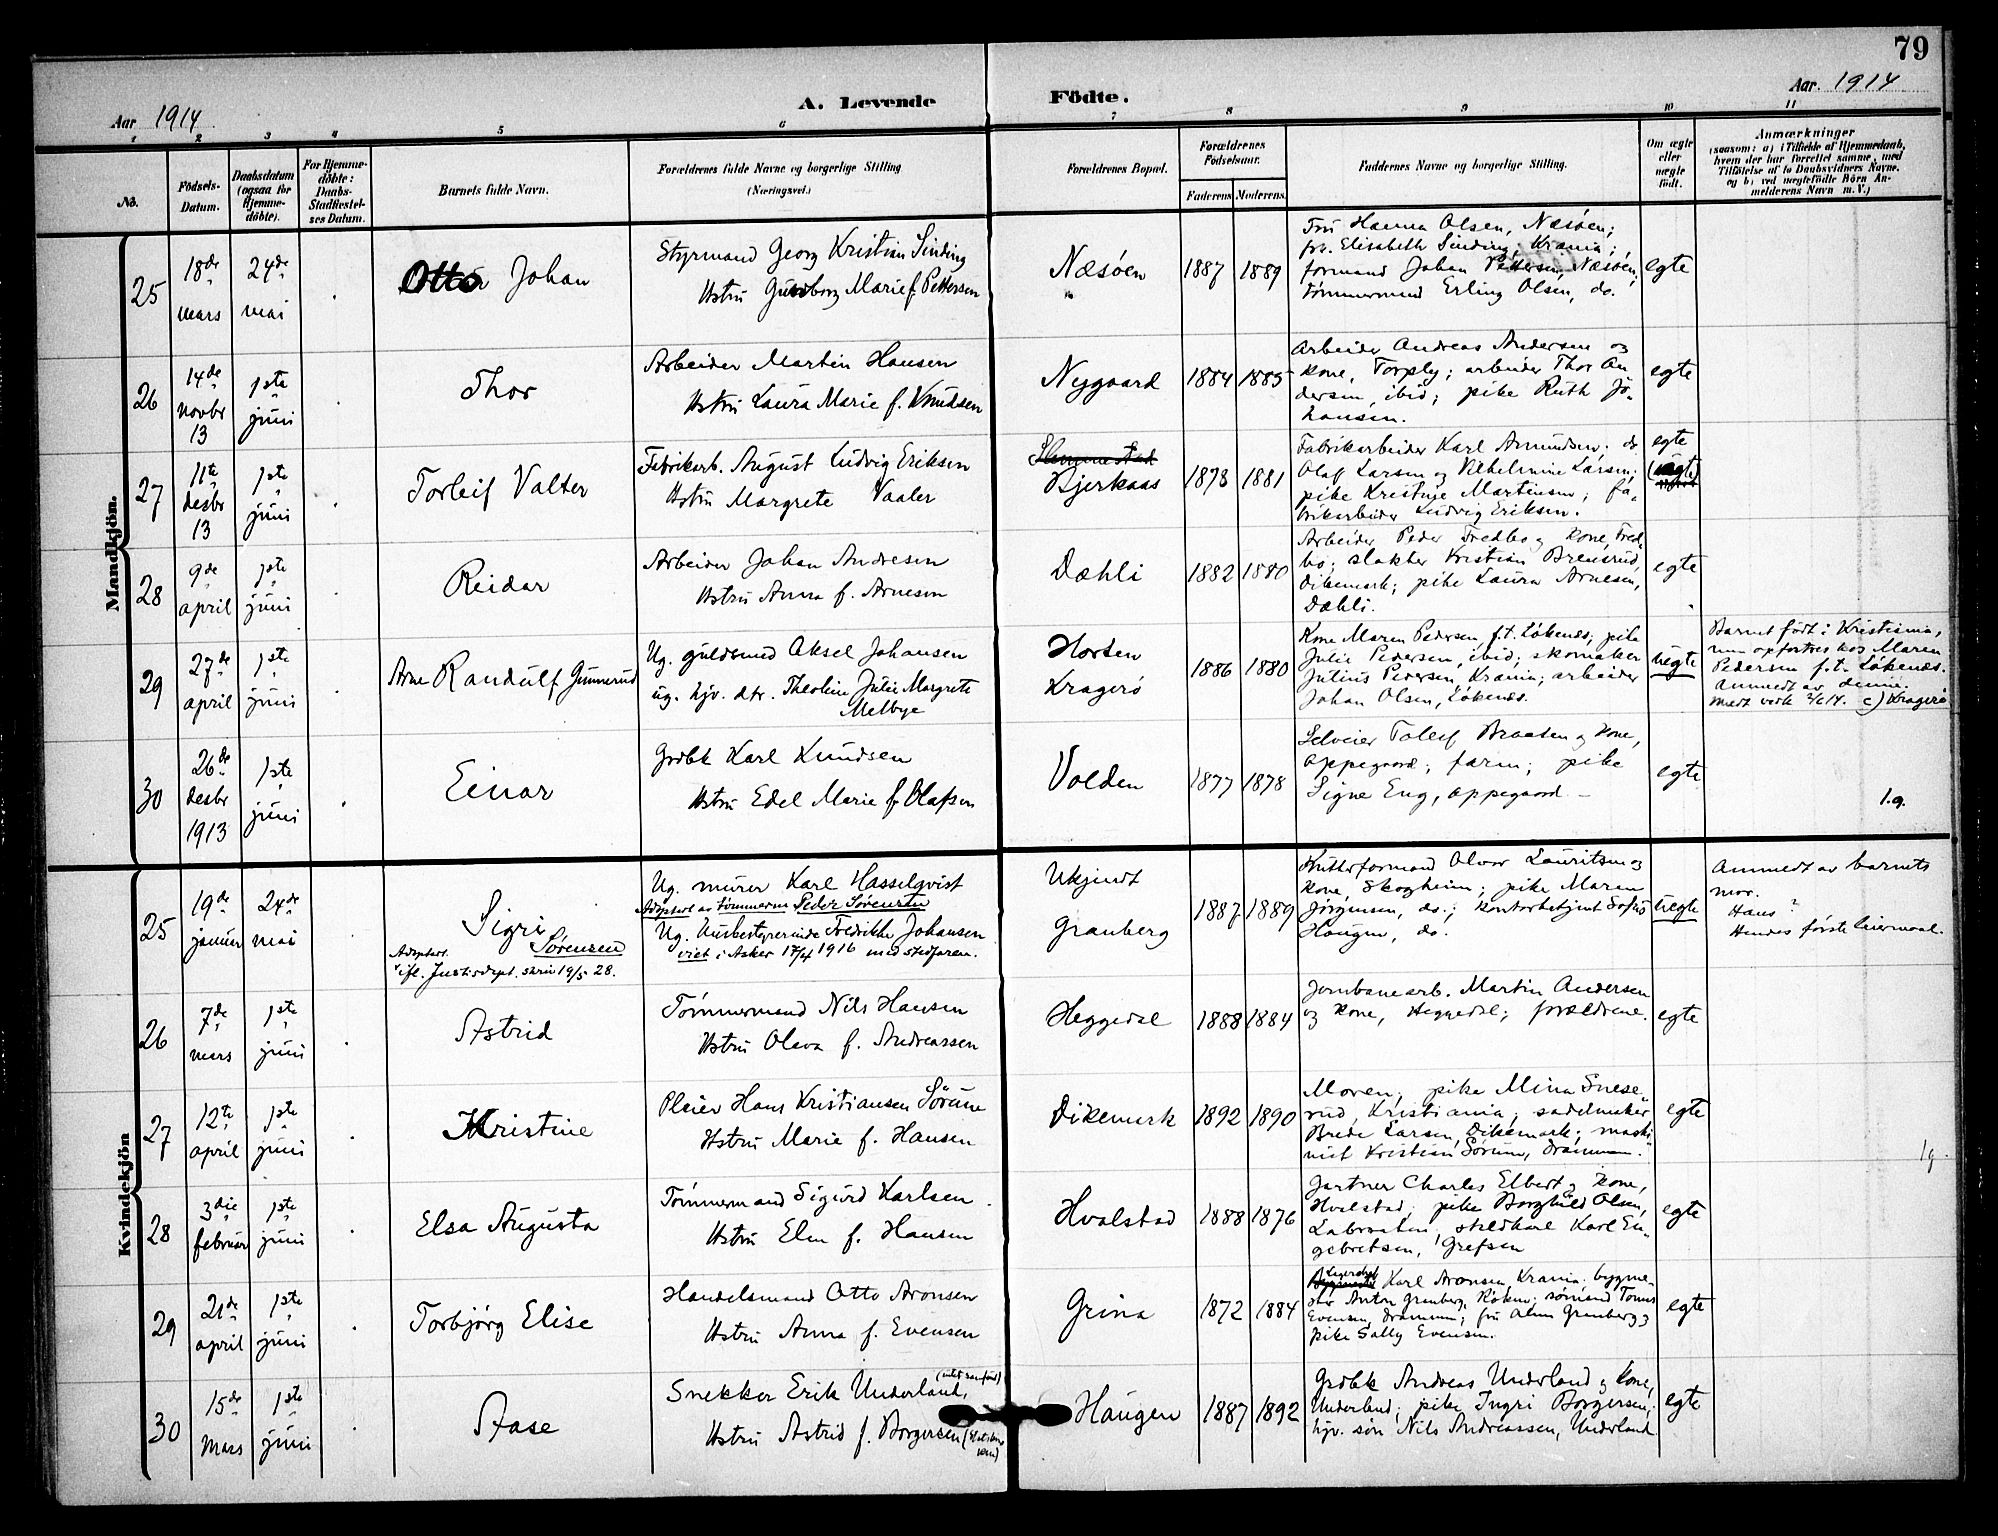 79
Aar 1914
A. Levende Födte.
Aar 1914
1 2 3 4 5 6 7 8 9 10 11
No.
Födsels-Datum.
Daabsdatum (ogsaa for Hjemmedöbte).
For Hjemmedöbte: Daabs-Stadfæstelses Datum.
Barnets fulde Navn.
Forældrenes fulde Navne og borgerlige Stilling
(Næringsvei.)
Forældrenes Bopæl.
Forældrenes Födselsaar.
Faderens Moderens.
Faddernes Navne og borgerlige Stilling.
Om ægte eller uægte födt.
Anmærkninger
(saasom: a) i Tilfælde af Hjemmedaab,
hvem der har forrettet samme, med
Tilföielse af to Daabsvidners Navne.
og b) ved uægtefödte Börn Anmelderens Navn m. V.)
Mandkjön.
25
18de mars
24de mai
Otto Johan
Styrmand Georg Kristian Sinding
Hstru Gunborg Marie f. Pettersen
Næsöen
1887 1889
Fru Hanna Olsen, Næsöen;
frk. Elisabeth Sinding, Krania;
formand Johan Pettersen, Næsöen,
tömmermand Erling Olsen, do.
egte
26
14de novbr 13
1ste juni
Thor
Arbeider Martin Hansen
Hstru Laura Marie f. Knudsen
Nygaard
1884 1885
Arbeider Andreas Andersen og
kone, Torply; arbeider Thor An-
dersen, ibid; pike Ruth Jo-
hansen.
egte
27
11te desbr 13
1ste juni
Torleif Valter
Fabrikarb. August Ludvig Eriksen
Hstru Margrete Vaaler
Slemmestad
Bjerkaas
1878 1881
Fabrikarbeider Karl Amundsen; do
Olaf Larsen og Vilhelmine Larsen;
pike Kristine Martinsen; fa-
brikarbeider Ludvig Eriksen.
egte
28
9de april
1ste juni
Reidar
Arbeider Johan Andresen
Hstru Anna f. Arnesen
Dæhli
1882 1880
Arbeider Peder Fredbo og kone, Fred-
bo; slakter Kristian Brensrud,
Dikemark; pike Laura Arnesen,
Dæhli.
egte
29
27de april
1ste juni
Arne Randulf Gunnerud
Ug. guldsmed Aksel Johansen
ug. hjv. dtr. Theoline Julie Margrete
Melbye
Horten
Kragerö
1886 1880
Kone Maren Pedersen f.t. Lökenes; pike
Julie Pedersen, ibid; skomaker
Julius Pedersen Krania; arbeider
Johan Olsen, Lökenes.
uegte
Barnet födt i Kristiania,
men opfostres hos Maren
Pedersen f.t. Lökenes.
Anmedt av denne.
c) Kragerö
30
26de desbr 1913
1ste juni
Einar
Grdbk Karl Knudsen
Hstru Edel Marie f. Olafsen
Volden
1877 1878
Selveier Tollef Braaten og kone,
Oppegaard; farm; pike
Signe Eng, Oppegaard –
egte
1.g.
Kvindekjön
25
19de januar
24de mai
Sigri
Sörensen
Adoptert
ifl. Justisdept. skriv 19/5 28.
Ug. murer Karl Hasselqvist
Adoptert av tömmerm Peder Sörensen
Ug. Husbestyrerinde Fredrikke Johansen
viet i Asker 17/4 1916 med stedfaren.
Ukjendt
Granberg
1887 1889
Kutterformand Olvar Lauritsen og
kone Skogheim; pike Maren
Jörgensen, do.; kontorbetjent Sofus
Haugen, do.
uegte
Anmedt av barnets
mor.
Hans?
Hendes förste leiermaal.
26
7de mars
1ste juni
Astrid
Tömmermand Nils Hansen
Hstru Oleva f. Andreassen
Heggedal
1888 1884
Jernbanearb. Martin Andersen
og kone, Heggedal; forældrene.
egte
27
12te april
1ste juni
Kristine
Pleier Hans Kristiansen Sörum
Hstru Marie f. Hansen
Dikemark
1892 1890
Moren; pike Mina Snese-
rud, Kristiania; sadelmaker
Brede Larsen, Dikemark; maski-
nist Kristian Sörum, Drammen.
egte
1g.
28
3die februar
1ste juni
Elsa Augusta
Tömmermand Sigurd Karlsen
Hstru Elen f. Hansen
Hvalstad
1888 1876
Gartner Charles Elbert og kone,
Hvalstad; pike Borghild Olsen,
Labraaten, staldkarl Karl En-
gebretsen, Grefsen
egte
29
21de april
1ste juni
Torbjörg Elise
Handelsmand Otto Aronsen
Hstru Anna f. Evensen
Grina
1872 1884
Karl Aronsen, Krania. bygme-
ster Anton Granberg, Röken; sömand Tomas
Evensen, Drammen; fru Alma Granberg og
pike Sally Evensen.
egte
30
15de mars
1ste juni
Aase
Snekker Erik Underland,
Hstru Astrid f. Borgersen
Haugen
1887 1892
Grdbk Andreas Underland og kone,
Underland; pike Ingri Borgersen;
hjv. sön Nils Andreassen, Underland
egte